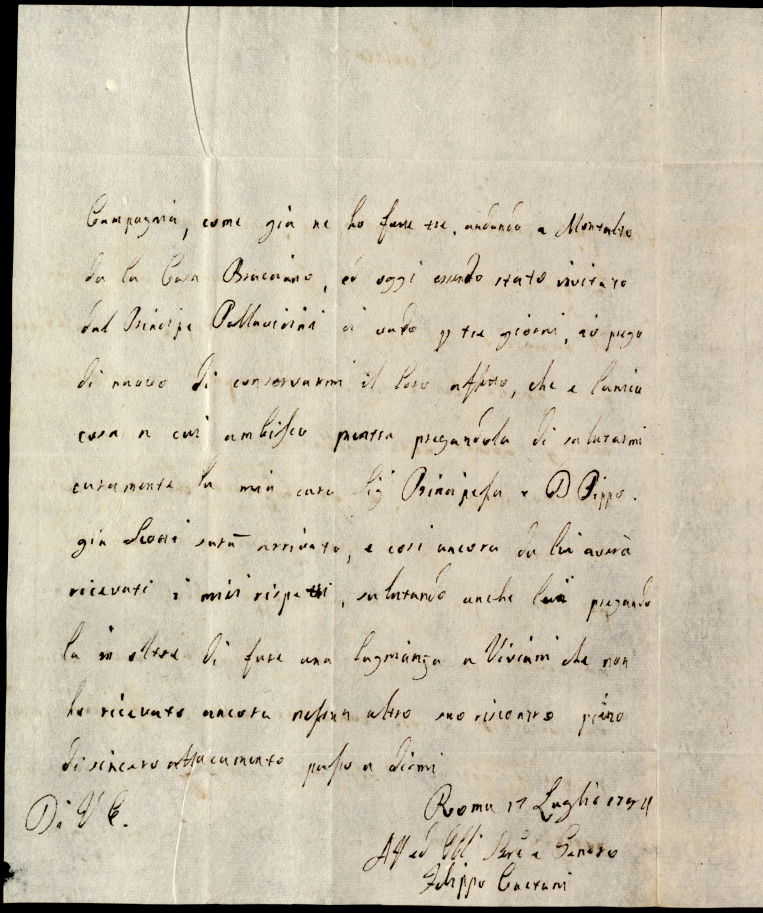 Campagnia, come già ne ho fatte tre, andando a Montalto
da la Casa Bracciano, ed oggi essendo stato invitato
dal Principe Pallavicini ci vado p tre giorni, io prego
di nuovo di conservarmi il Loro affetto, che e l'unica
cosa a cui ambisco mentre pregandola di salutarmi
caramente la mia cara Sig Principessa e D Pippo.
già Scotti sarà arrivato, e così ancora da lui averà
ricevuti i miei rispetti, salutando anche lui pregando
la in oltre di fare una lagnianza a Viviani che non
ho ricevuto ancora nessun altro suo riscontro pieno
di sincero attacamento passo a dirmi
Di V E.
Roma 17 Luglio
Aff ed Obl Ser e Genero
Filippo Caetani